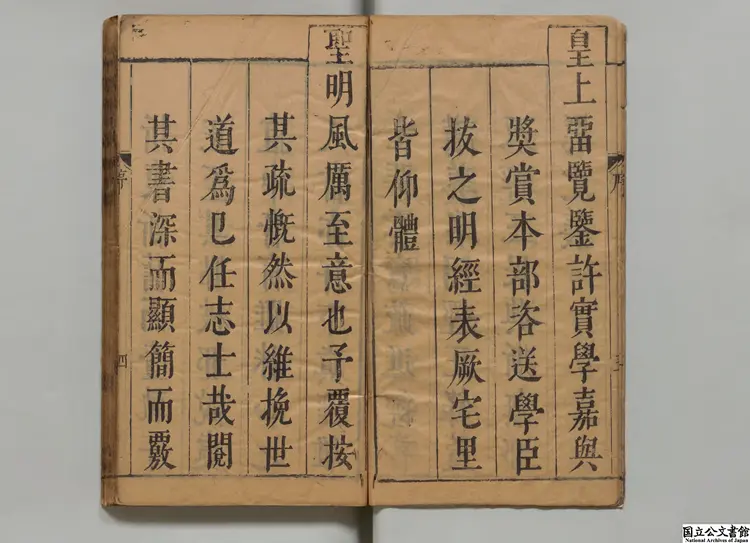 皇上畱覽鑒許實學嘉與
奬賞本部咨送學臣
拔之明經表厥宅里
皆仰體
聖明風厲至意也予覆按
其疏慨然以維挽世
道爲已任志士哉閱
其書深而顯簡而覈
序
四
国立公文書館
National Archives of Japan